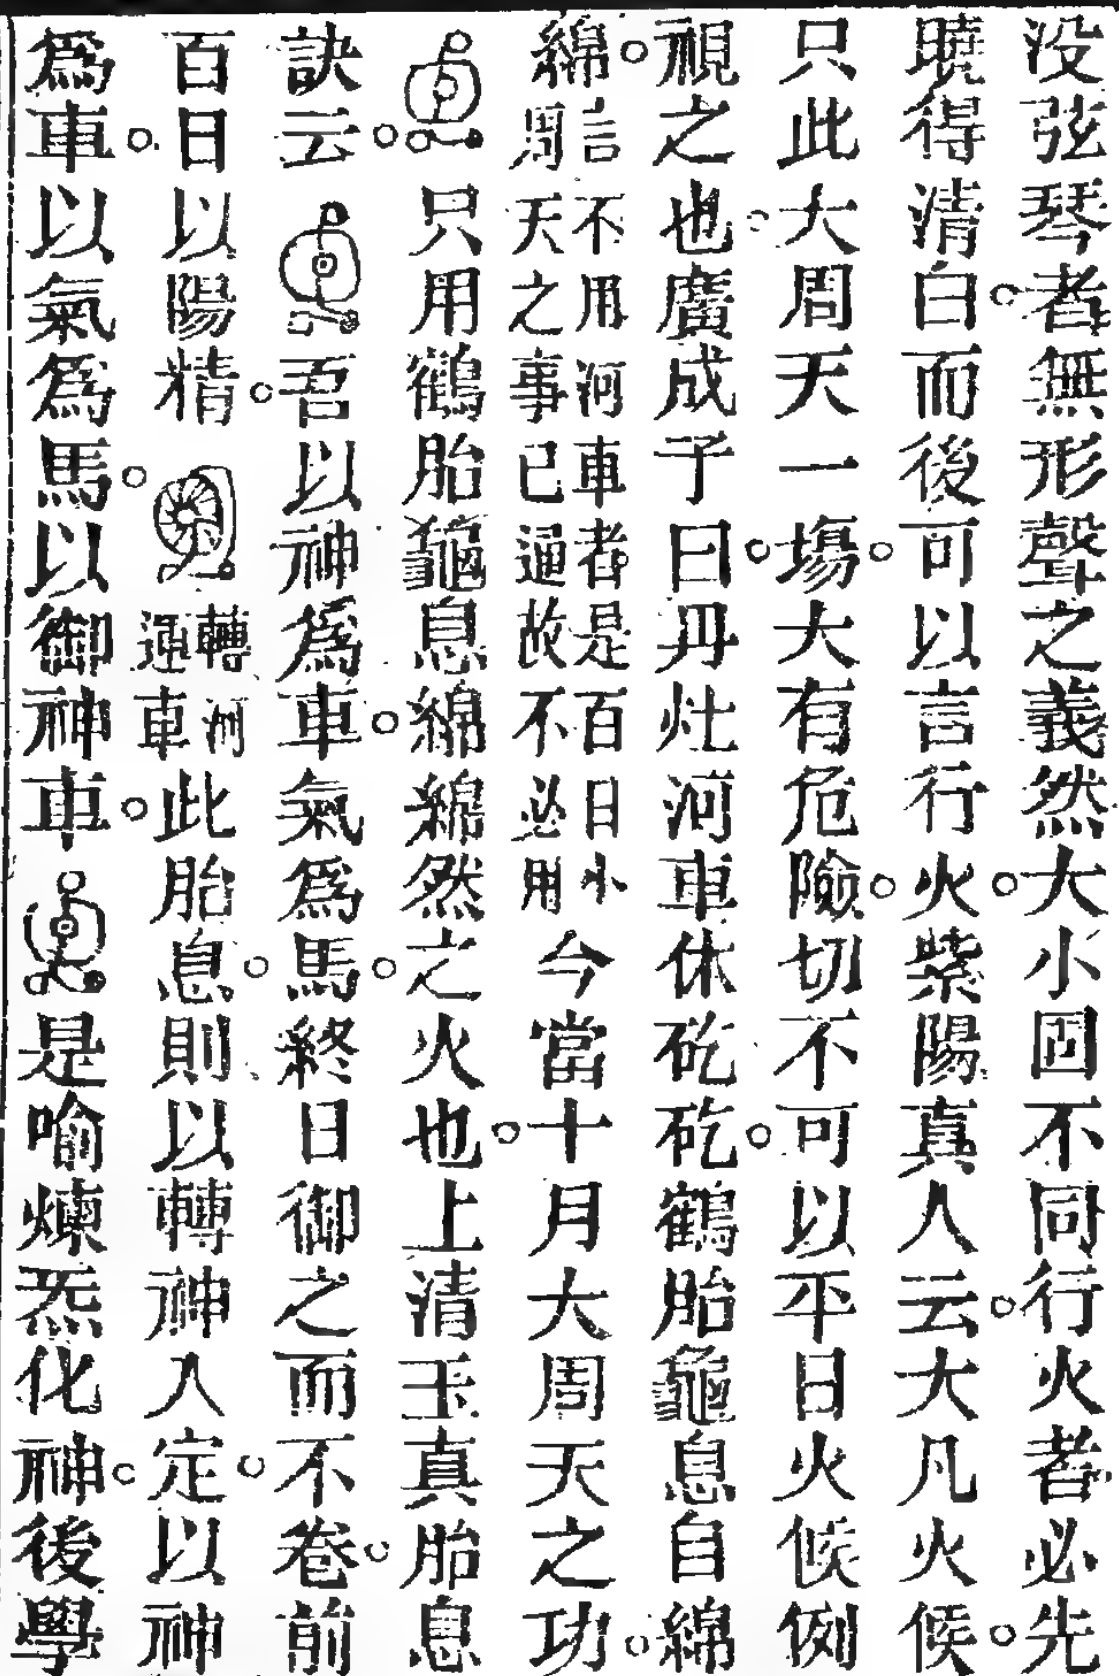 没弦琴者無形聲之義然大小固不同行火者必先
曉得清白。而後可以言行火。紫陽真人云。大凡火候。
只此大周天一場。大有危險。切不可以平日火候例
視之也。廣成子曰。丹灶河車休矻矻。鶴胎龜息自綿
綿。
言不用河車者是百日小
周天之事已過故不必用
今當十月大周天之功。
只用鶴胎龜息綿綿然之火也。上清玉真胎息
訣云。吾以神爲車。氣爲馬。終日御之而不卷。前
百日以陽精。轉運河車此胎息。則以轉神入定。以神
爲車。以氣爲馬。以御神車。是喻煉炁化神。後學